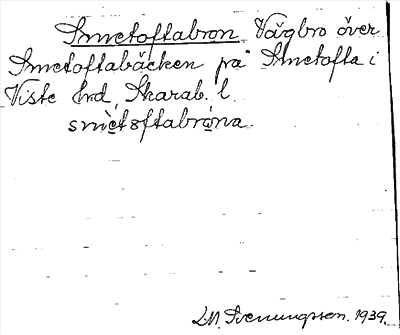 Smetoftabron Vägbro över
Smetoftabäcken på Smetofta i
Viste hd, Skarab. l.
smètoftabròna.
L.M. Svenungsson. 1939.